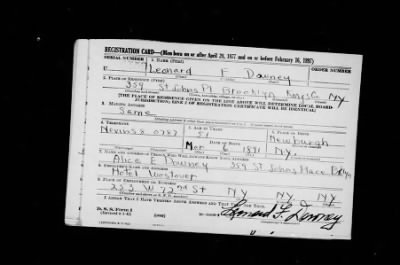 REGISTRATION CARD—(Men born on or after April 28, 1877 and on or before February 16, 1897)
SERIAL NUMBER 1. NAME (Print) ORDER NUMBER
Leonard F Downey
2. PLACE OF RESIDENCE (Print)
359 St Johns Pl Brooklyn Kings Co NY.
[THE PLACE OF RESIDENCE GIVEN ON THE LINE ABOVE WILL DETERMINE LOCAL BOARD
JURISDICTION; LINE 2 OF REGISTRATION CERTIFICATE WILL BE IDENTICAL]
3. MAILING ADDRESS
Same
4. TELEPHONE 5. AGE IN YEARS 6. PLACE OF BIRTH
51 Newburgh
Mar 6 1891 NY.
7. NAME AND ADDRESS OF PERSON WHO WILL ALWAYS KNOW YOUR ADDRESS
Alice E Downey 359 St Johns Place Bklyn
8. EMPLOYER'S NAME AND ADDRESS
Hotel Westover
9. PLACE OF EMPLOYMENT OR BUSINESS
253 W 72nd St NY NY NY
I AFFIRM THAT I HAVE VERIFIED ABOVE ANSWERS AND THAT THEY ARE TRUE.
D. S. S. Form 1
Leonard F. Downey